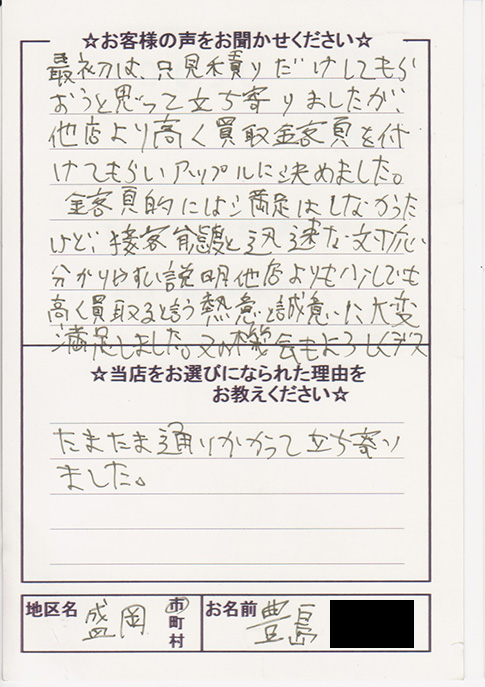 ☆お客様の声をお聞かせください☆
最初は、只見積りだけしてもら
おうと思って立ち寄りましたが、
他店より高く買取金額を付
けてもらいアップルに決めました。
金額的には満足はしなかった
けど、接客態度と迅速な対応
分かりやすい説明他店よりも少しでも
高く買取ると言う熱意と誠意に大変
満足しました。又の機会もよろしくデス
☆当店をお選びになられた理由を
お教えください☆
たまたま通りかかって立ち寄り
ました。
地区名 盛岡 市町村 お名前 豊島